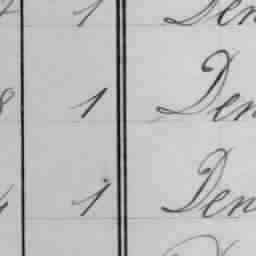 1 Den
8 1 Den
4 1 Den